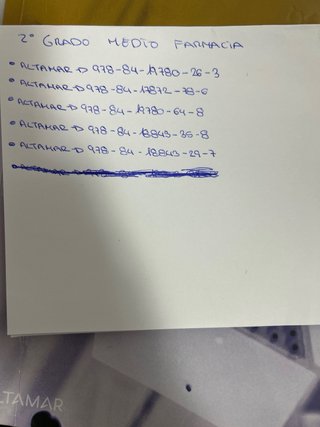 2º GRADO MEDIO FARMACIA
• ALTAMAR → 978-84-19780-26-3
• ALTAMAR → 978-84-17872-78-6
• ALTAMAR → 978-84-19780-64-8
• ALTAMAR → 978-84-18843-35-8
• ALTAMAR → 978-84-18843-29-7
LTAMAR